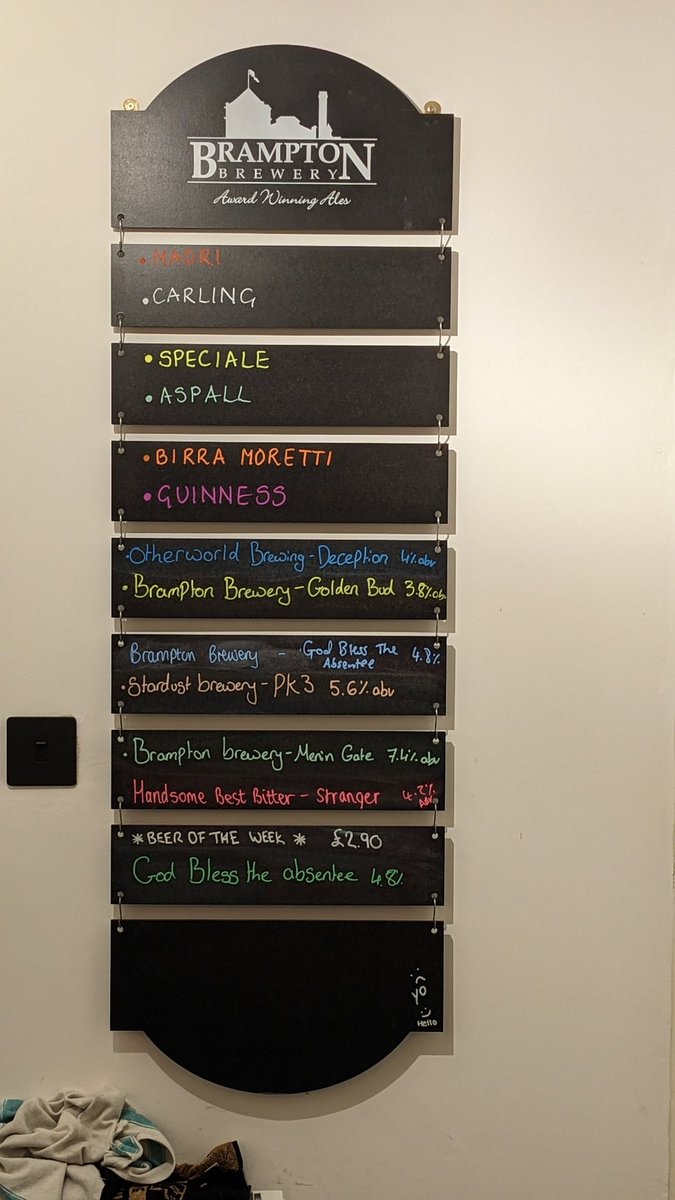 BRAMPTON
BREWERY
Award Winning Ales
• MADRI
• CARLING
• SPECIALE
• ASPALL
• BIRRA MORETTI
• GUINNESS
· Otherworld Brewing - Deception 4% abv
· Brampton Brewery - Golden Bud 3.8% abv
Brampton Brewery - God Bless The Absentee 4.8%
· Stardust brewery - PK3 5.6% abv
· Brampton brewery - Menin Gate 7.4% abv
Handsome Best Bitter - Stranger 4.2% ABV
* BEER OF THE WEEK * £2.90
God Bless the absentee 4.8%
Hello